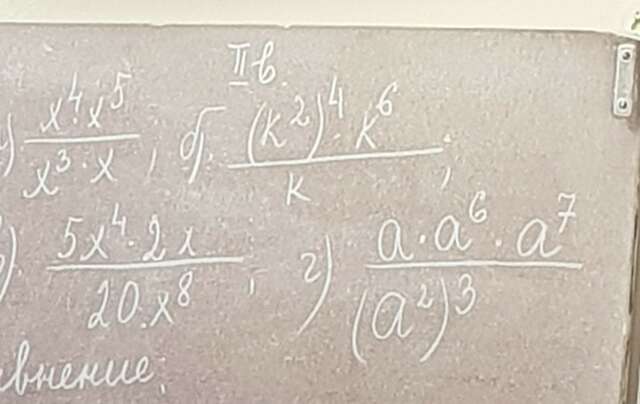 II в.
) x⁴·x⁵ / x³·x ; б) (k²)⁴·k⁶ / k ;
) 5x⁴·2x / 20·x⁸ ; г) a·a⁶·a⁷ / (a²)³
внение;